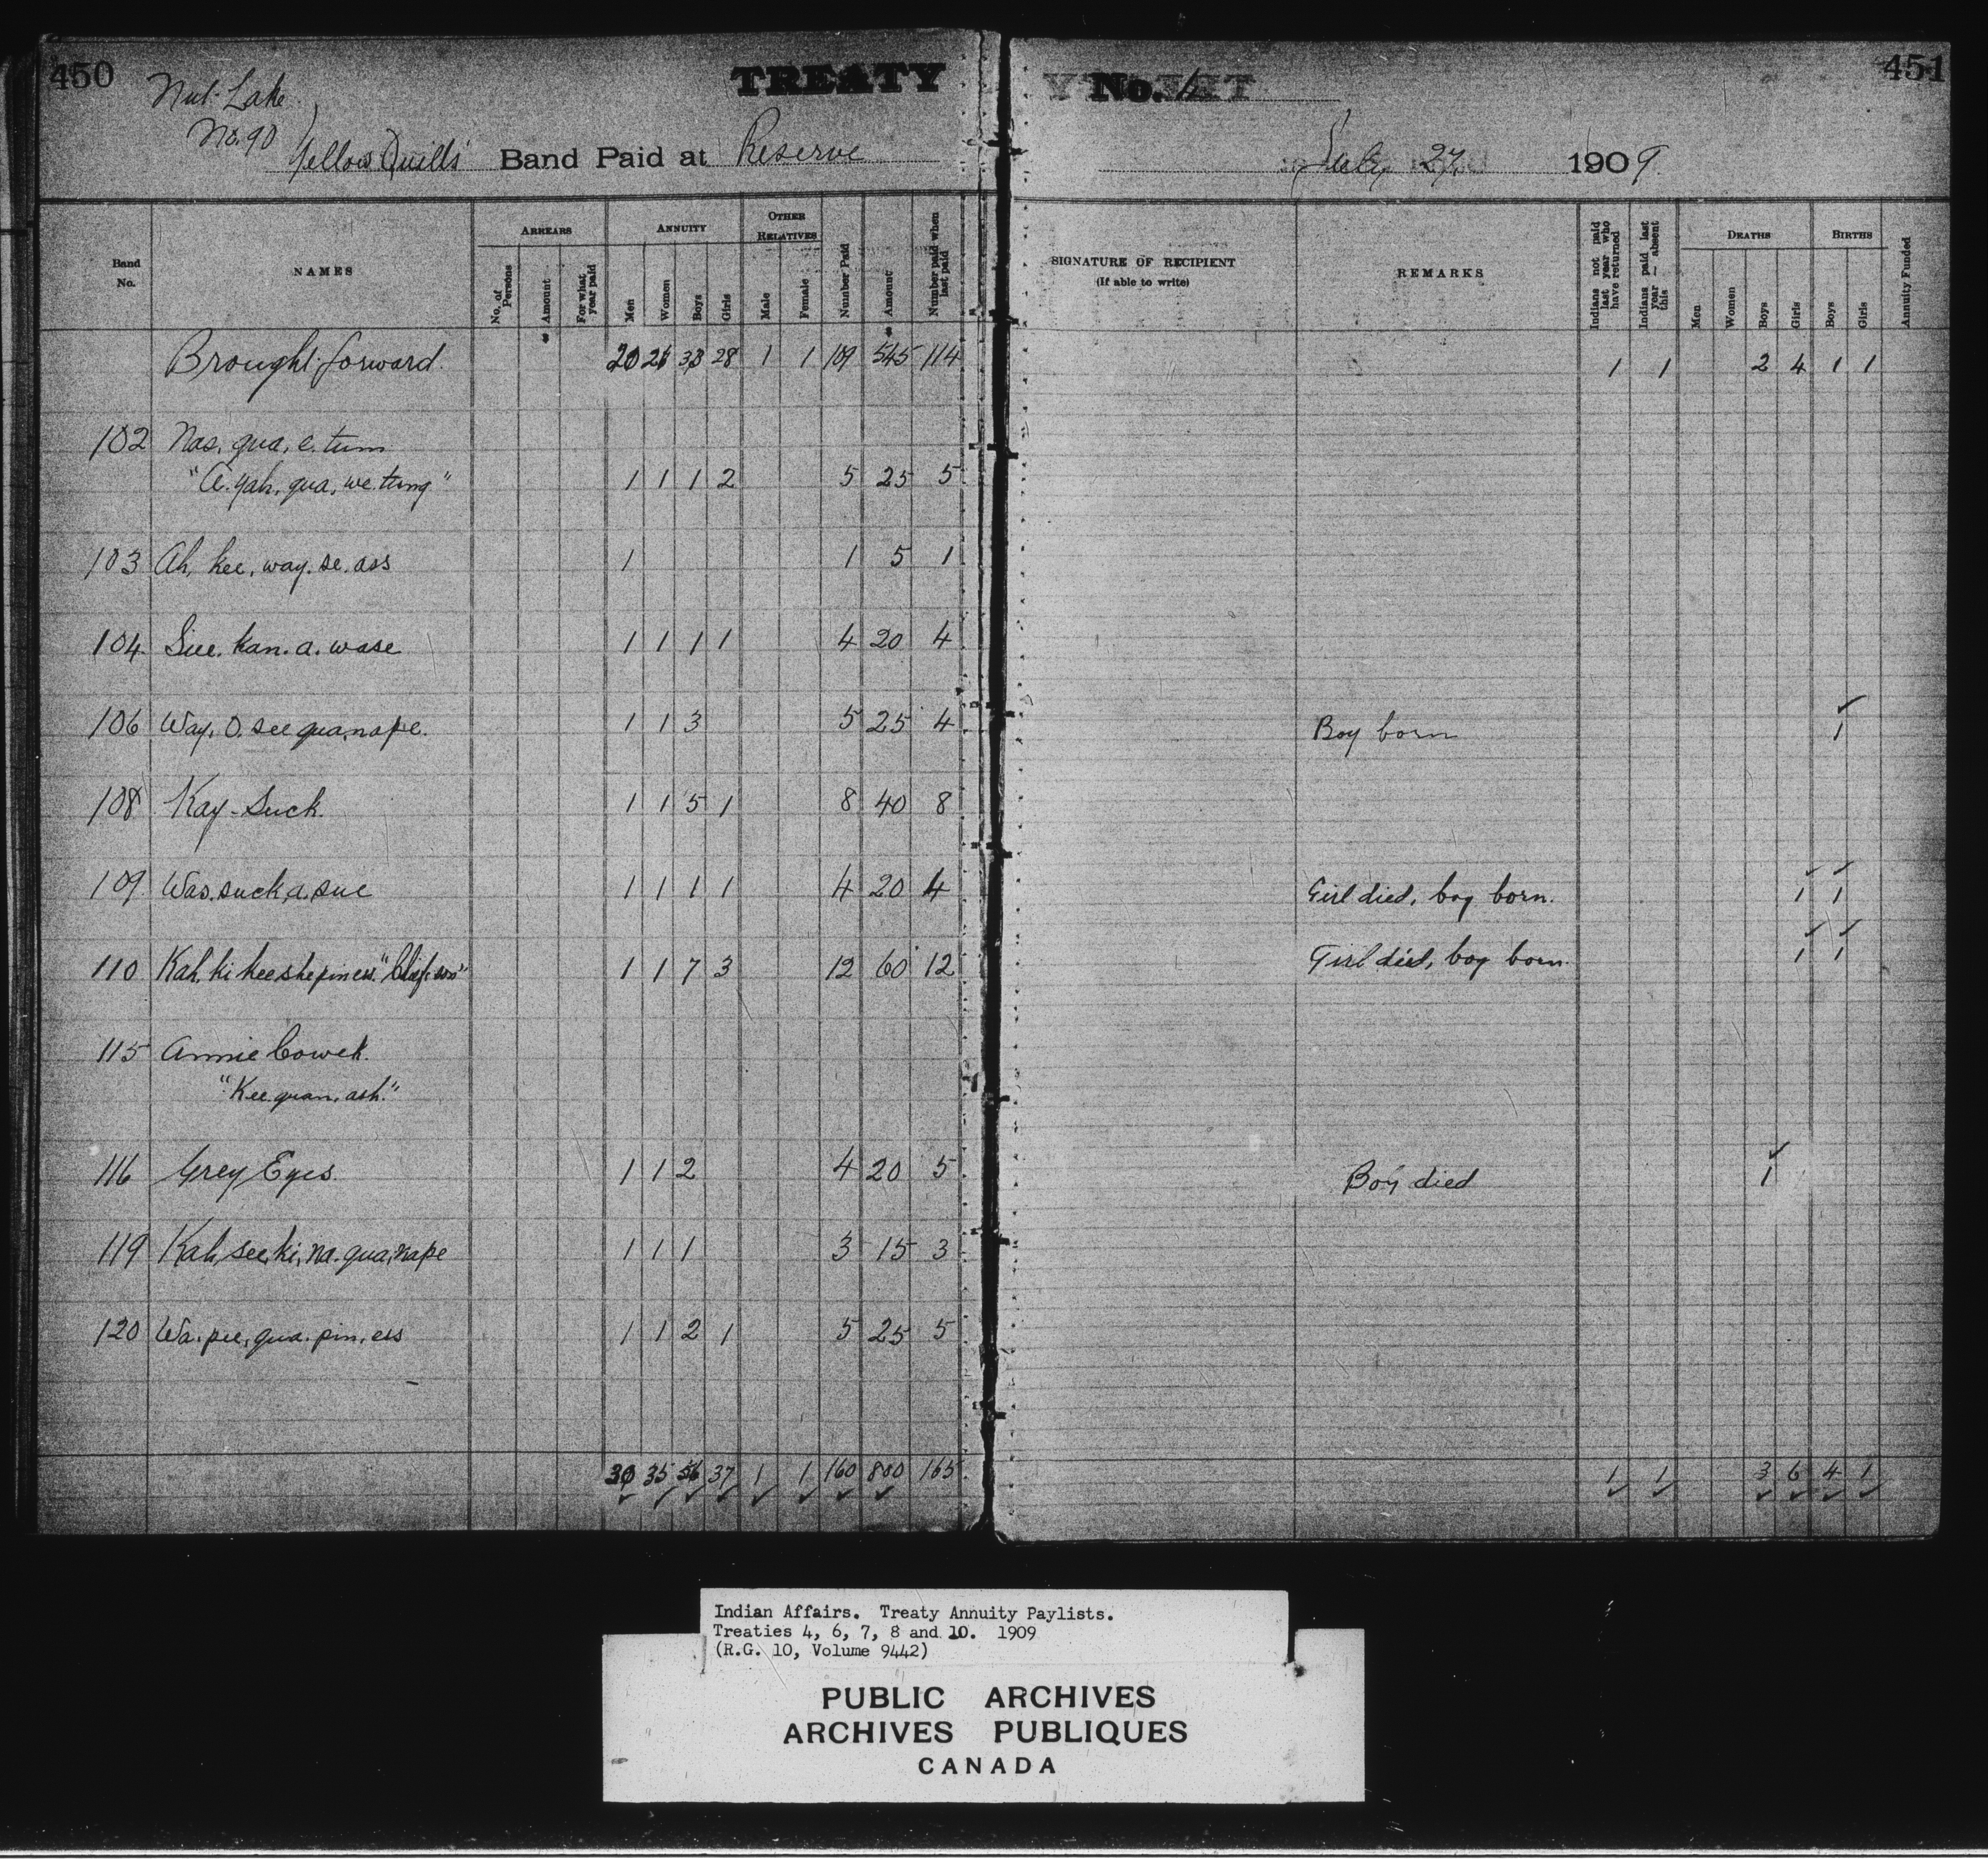 450
Nut Lake
No. 90
TREATY No. 4
451
Yellow Quills' Band Paid at Reserve July 27 1909
Band No. NAMES ARREARS ANNUITY OTHER RELATIVES Number Paid Amount Number paid when last paid SIGNATURE OF RECIPIENT (If able to write) REMARKS Indians not paid last year who have returned Indians paid last year — absent this DEATHS BIRTHS Annuity Funded
No. of Persons Amount For what year paid Men Women Boys Girls Male Female Men Women Boys Girls Boys Girls
$ $
Brought forward 20 26 33 28 1 1 109 545 114 1 1 2 4 1 1
102 Nas. qua. e. tum
"A. yah. qua. we. tung" 1 1 1 2 5 25 5
103 Ah. kee. way. se. ass 1 1 5 1
104 Sue. kan. a. wase 1 1 1 1 4 20 4
106 Way. O. see qua. nape. 1 1 3 5 25 4 Boy born 1
108 Kay-Suck. 1 1 5 1 8 40 8
109 Was. suck. a. sue 1 1 1 1 4 20 4 Girl died, boy born. 1 1
110 Kah. ki kee she pin ess. 1 1 7 3 12 60 12 Girl died, boy born. 1 1
115 Annie Cowek.
"Kee. quan. ash."
116 Grey Eyes. 1 1 2 4 20 5 Boy died 1
119 Kah. see. ki. na. qua. nape 1 1 1 3 15 3
120 Wa. pee. qua. pin. ess 1 1 2 1 5 25 5
30 35 56 37 1 1 160 800 165 1 1 3 6 4 1
Indian Affairs. Treaty Annuity Paylists.
Treaties 4, 6, 7, 8 and 10. 1909
(R.G. 10, Volume 9442)
PUBLIC ARCHIVES
ARCHIVES PUBLIQUES
CANADA